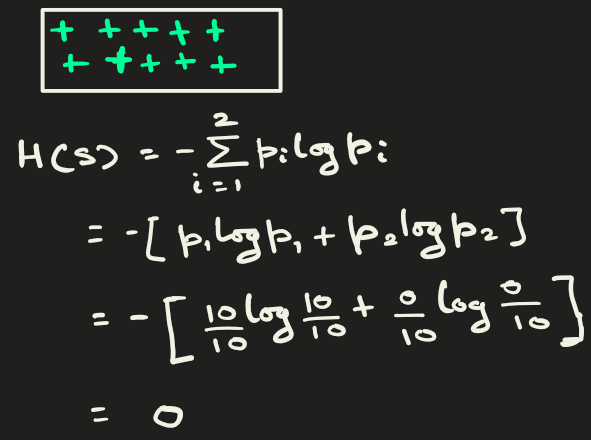 + + + + +
+ + + + +
H(S) = -∑_{i=1}^{2} p_i log p_i
= -[ p_1 log p_1 + p_2 log p_2 ]
= -[ 10/10 log 10/10 + 0/10 log 0/10 ]
= 0